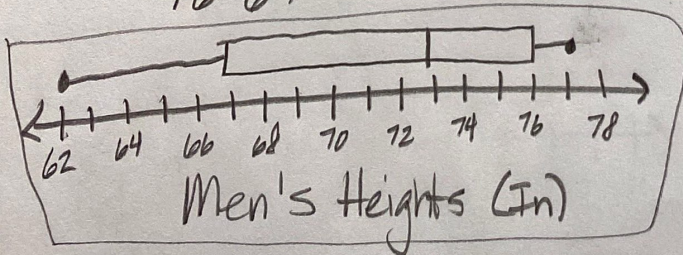 62 64 66 68 70 72 74 76 78
Men's Heights (In)